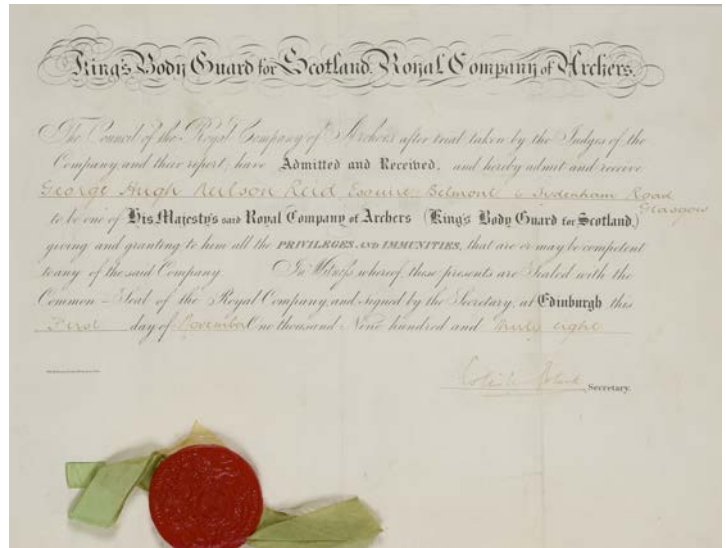 King's Body Guard for Scotland, Royal Company of Archers.
The Council of the Royal Company of Archers after trial taken by the Judges of the
Company and their report, have Admitted and Received, and hereby admit and receive
George Hugh Neilson Reid Esquire Belmont 6 Sydenham Road
Glasgow
to be one of His Majesty's said Royal Company of Archers (King's Body Guard for Scotland,)
giving and granting to him all the PRIVILEGES AND IMMUNITIES, that are or may be competent
to any of the said Company. In Witness whereof, these presents are Sealed with the
Common-Seal of the Royal Company, and Signed by the Secretary, at Edinburgh this
First day of November One thousand Nine hundred and thirty eight
Secretary.